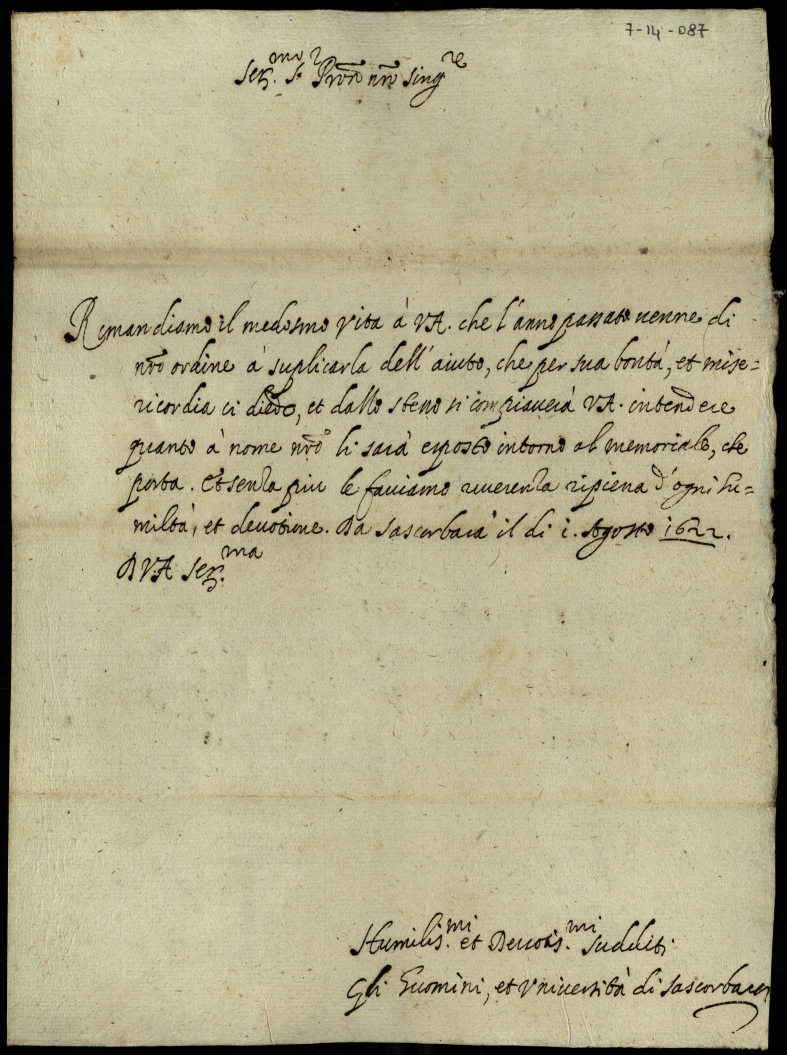 7-14-087
Ser.mo Sr Pron nro sing.re
Rimandiamo il medesmo Vita à V.A. che l'anno passato uenne di
nro ordine à suplicarla dell'aiuto, che per sua bontà, et mise=
ricordia ci diede, et dallo stesso si compiacerà V.A. intendere
quanto à nome nro li sarà esposto intorno al memoriale, che
porta. Et senza piu le facciamo riuerenza ripiena d'ogni hu=
miltà, et deuotione. Da Sascorbara il di i. Agosto 1622.
D V.A. Ser.ma
Humilis.mi et Deuotis.mi sudditi
Gli Huomini, et Vniuersità di Sascorbara